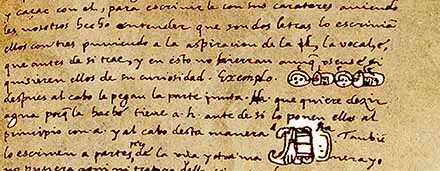 y caçar con el, para escriuirle con sus carateres auiendo
les nosotros hecho entender que son dos letras lo escriuian
ellos con tres puniendo a la aspiracion de la l, la vocal, e,
que antes de si trae, y en esto no hierran aunq̃ usense, si
quisieren ellos de su curiosidad. Exemplo.
despues al cabo le pegan la parte junta. Ha que quiere dezir
agua porq̃ la hachẽ tiene a. h. ante de si lo ponen ellos al
principio con a. y al cabo desta manera ha Tambiẽ
lo escriuen a partes, pero de la vna y otra manera yo
no pusiera aqui ni tratara